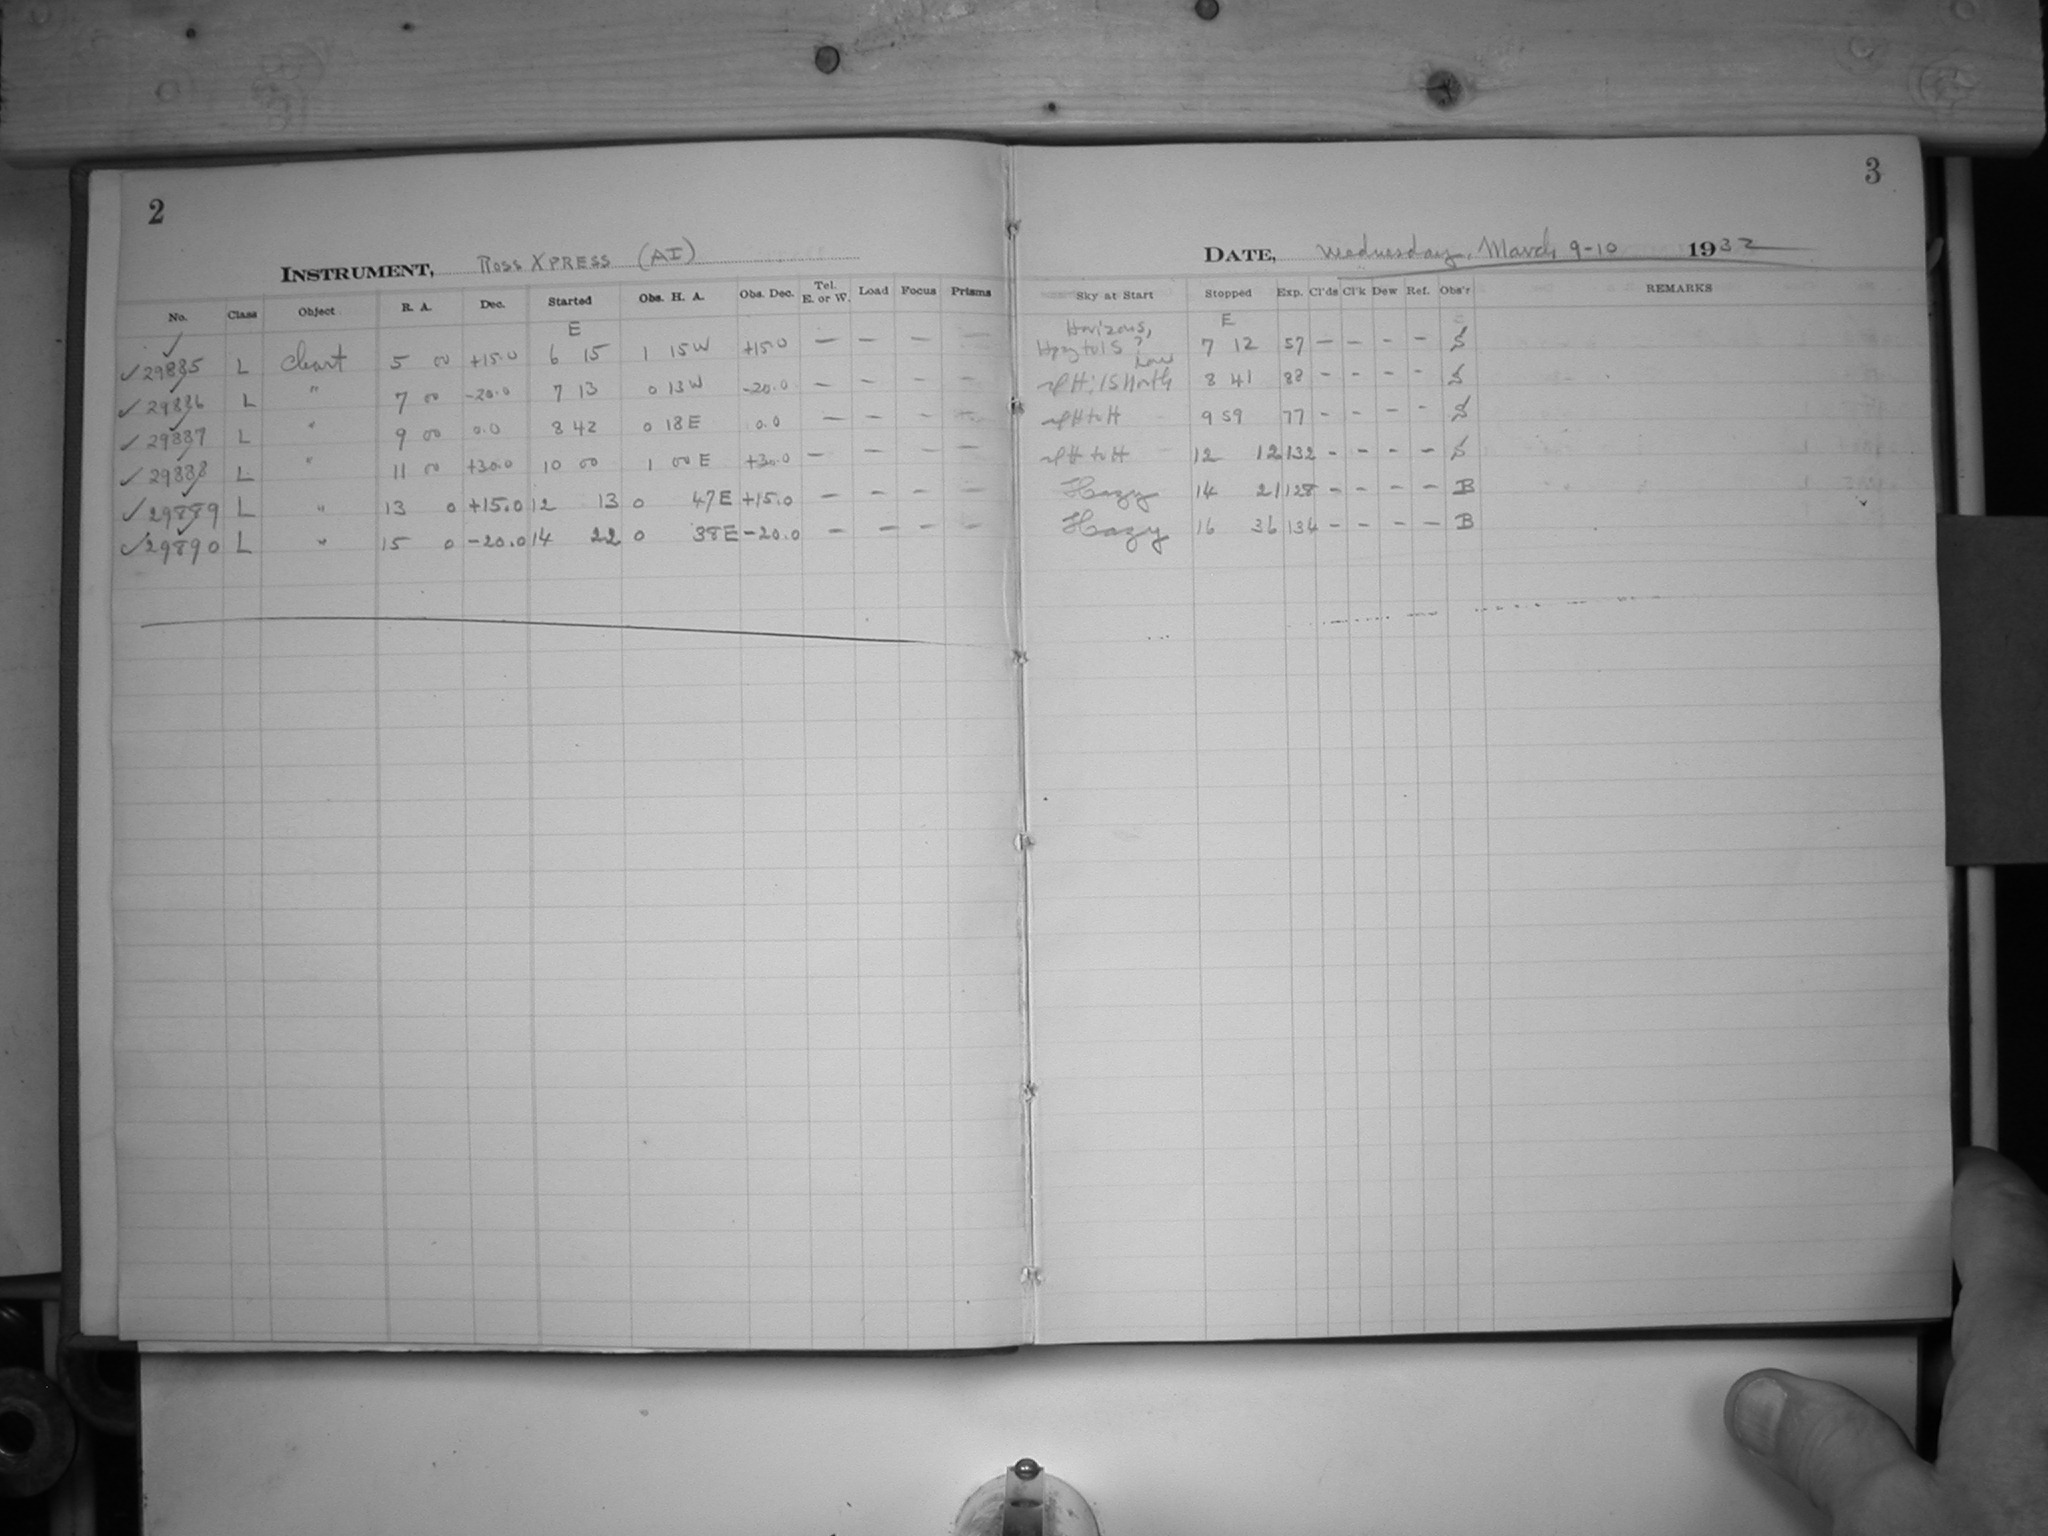 2
INSTRUMENT, ROSS XPRESS (AI)
No. Class Object R. A. Dec. Started Obs. H. A. Obs. Dec. Tel. E. or W. Load Focus Prisms
E
✓ 29885 L Chart 5 00 +15.0 6 15 1 15 W +15.0 — — — —
✓ 29886 L " 7 00 -20.0 7 13 0 13 W -20.0 — — — —
✓ 29887 L " 9 00 0.0 8 42 0 18 E 0.0 — — — —
✓ 29888 L " 11 00 +30.0 10 00 1 00 E +30.0 — — — —
✓ 29889 L " 13 0 +15.0 12 13 0 47 E +15.0 — — — —
✓ 29890 L " 15 0 -20.0 14 22 0 38 E -20.0 — — — —
3
DATE, Wednesday, March 9-10 1932
Sky at Start Stopped Exp. Cl'ds Cl'k Dew Ref. Obs'r REMARKS
Horizons, E
7 12 57 — — — — S
8 41 88 - - - - S
9 59 77 - - - - S
12 12 132 - - - - S
Hazy 14 21 128 - - - - B
Hazy 16 36 134 - - - - B